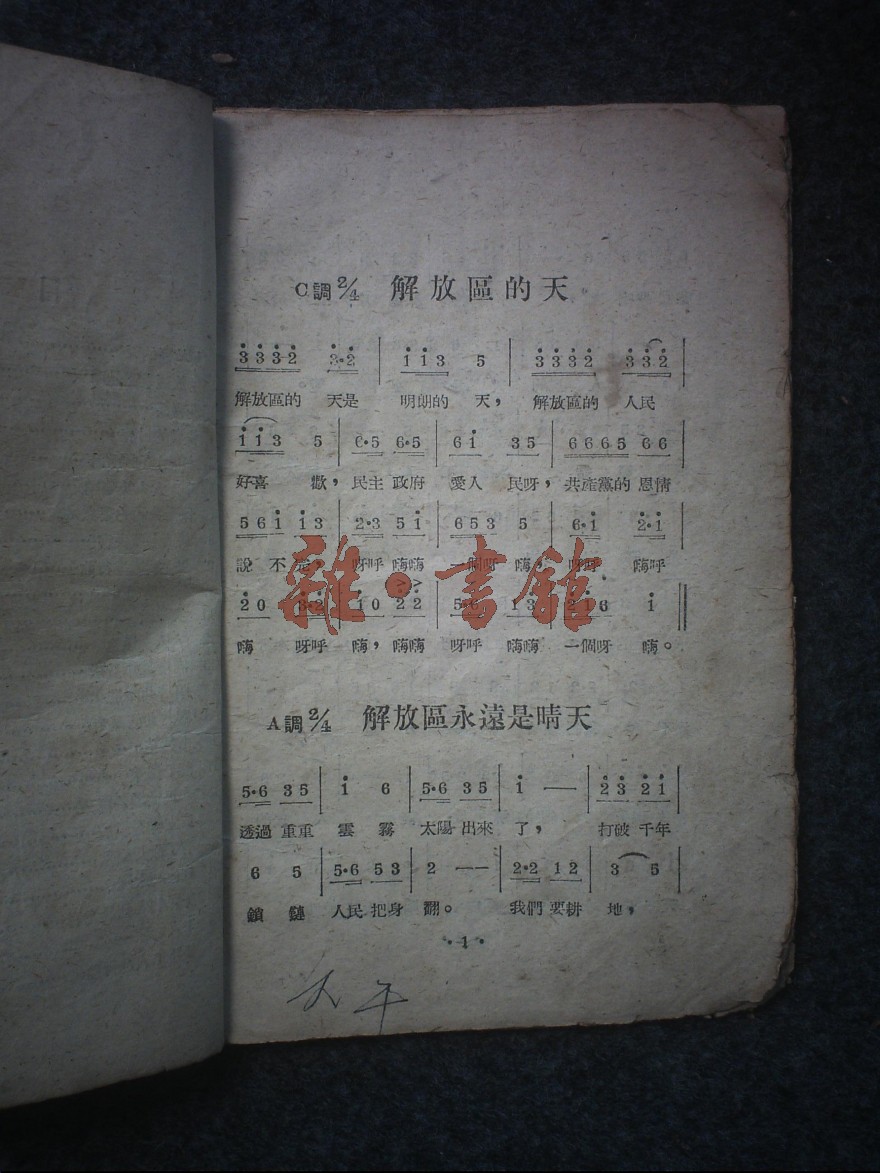 C調 2/4 解放區的天
3 3 3 2 3·2 | 1 1 3 5 | 3 3 3 2 3 3 2 |
解放區的 天是 明朗的 天，解放區的 人民
1 1 3 5 | 6·5 6·5 | 6 1 3 5 | 6 6 6 5 6 6 |
好喜 歡，民主 政府 愛人 民呀，共產黨的 恩情
5 6 1 1 3 | 2·3 5 1 | 6 5 3 5 | 6·1 2·1 |
說 不完，呀呼 嗨嗨 一個呀 嗨，呀呼 嗨呼
2 0 3·2 | 1 0 2 2 | 5·6 1 3 | 2 1 6 1 ‖
嗨 呀呼 嗨，嗨嗨 呀呼 嗨嗨 一個呀 嗨。
雜·書館
A調 2/4 解放區永遠是晴天
5·6 3 5 | 1 6 | 5·6 3 5 | 1 — | 2 3 2 1 |
透過 重重 雲 霧 太陽 出來 了， 打破 千年
6 5 | 5·6 5 3 | 2 —— | 2·2 1 2 | 3 5 |
鎖 鏈 人民 把身 翻。 我們 要耕 地，
·1·